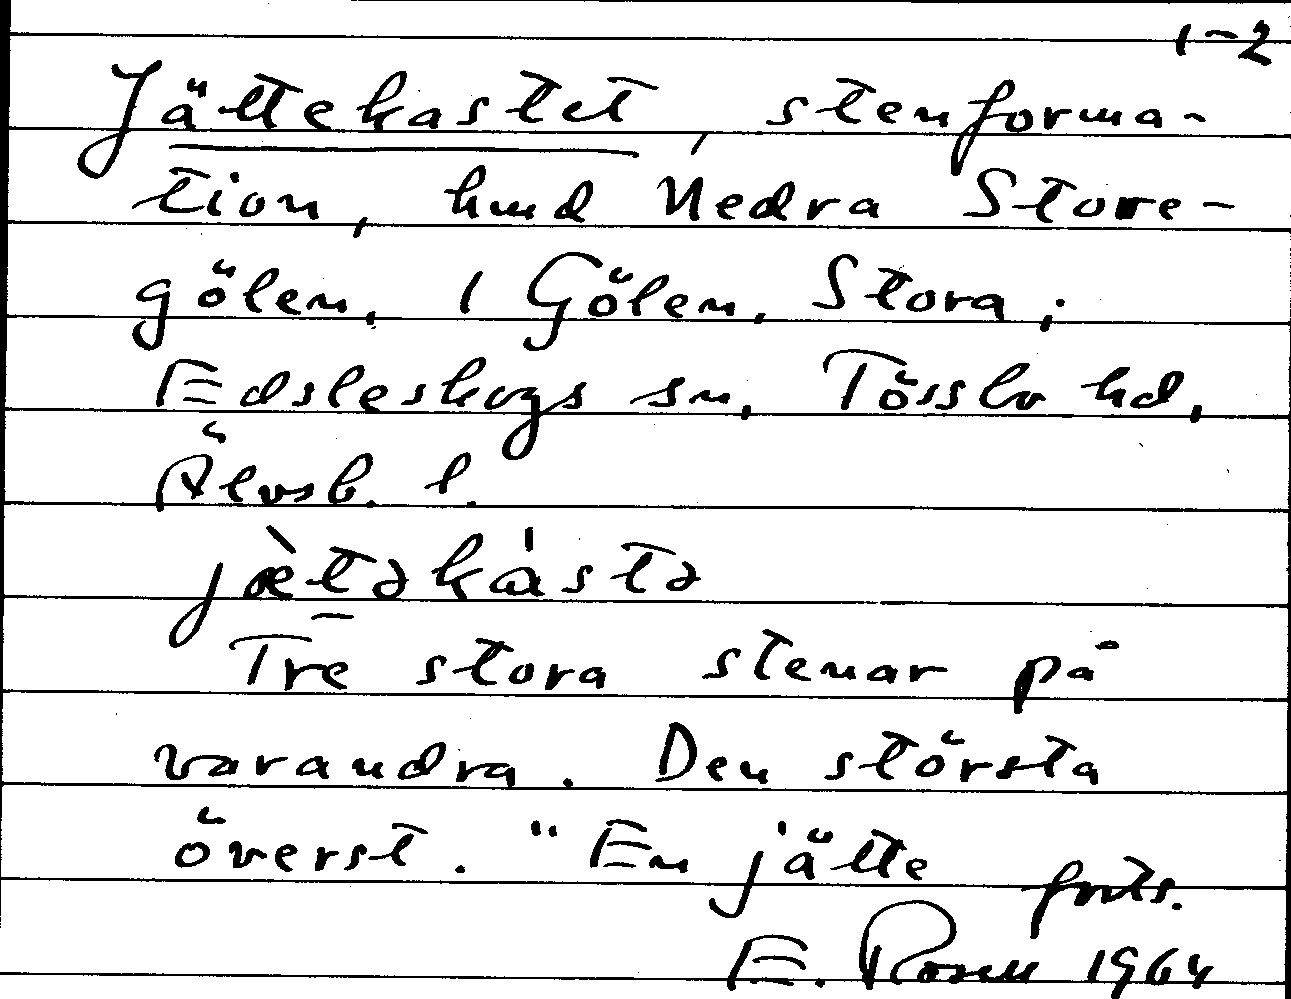 1-2
Jättekastet, stenforma-
tion, hmd Nedra Store-
gölen, 1 Gölen, Stora;
Edsleskogs sn, Tössbo hd,
Älvsb. l.
jæ̀təkás̀tə
Tre stora stenar på
varandra. Den största
överst. "En jätte forts.
E. Rosell 1964